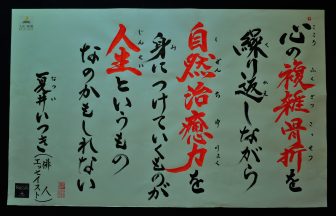 心の複雑骨折を
繰り返しながら
自然治癒力を
身につけていくものが
人生というもの
なのかもしれない
夏井いつき(俳人
エッセイスト)